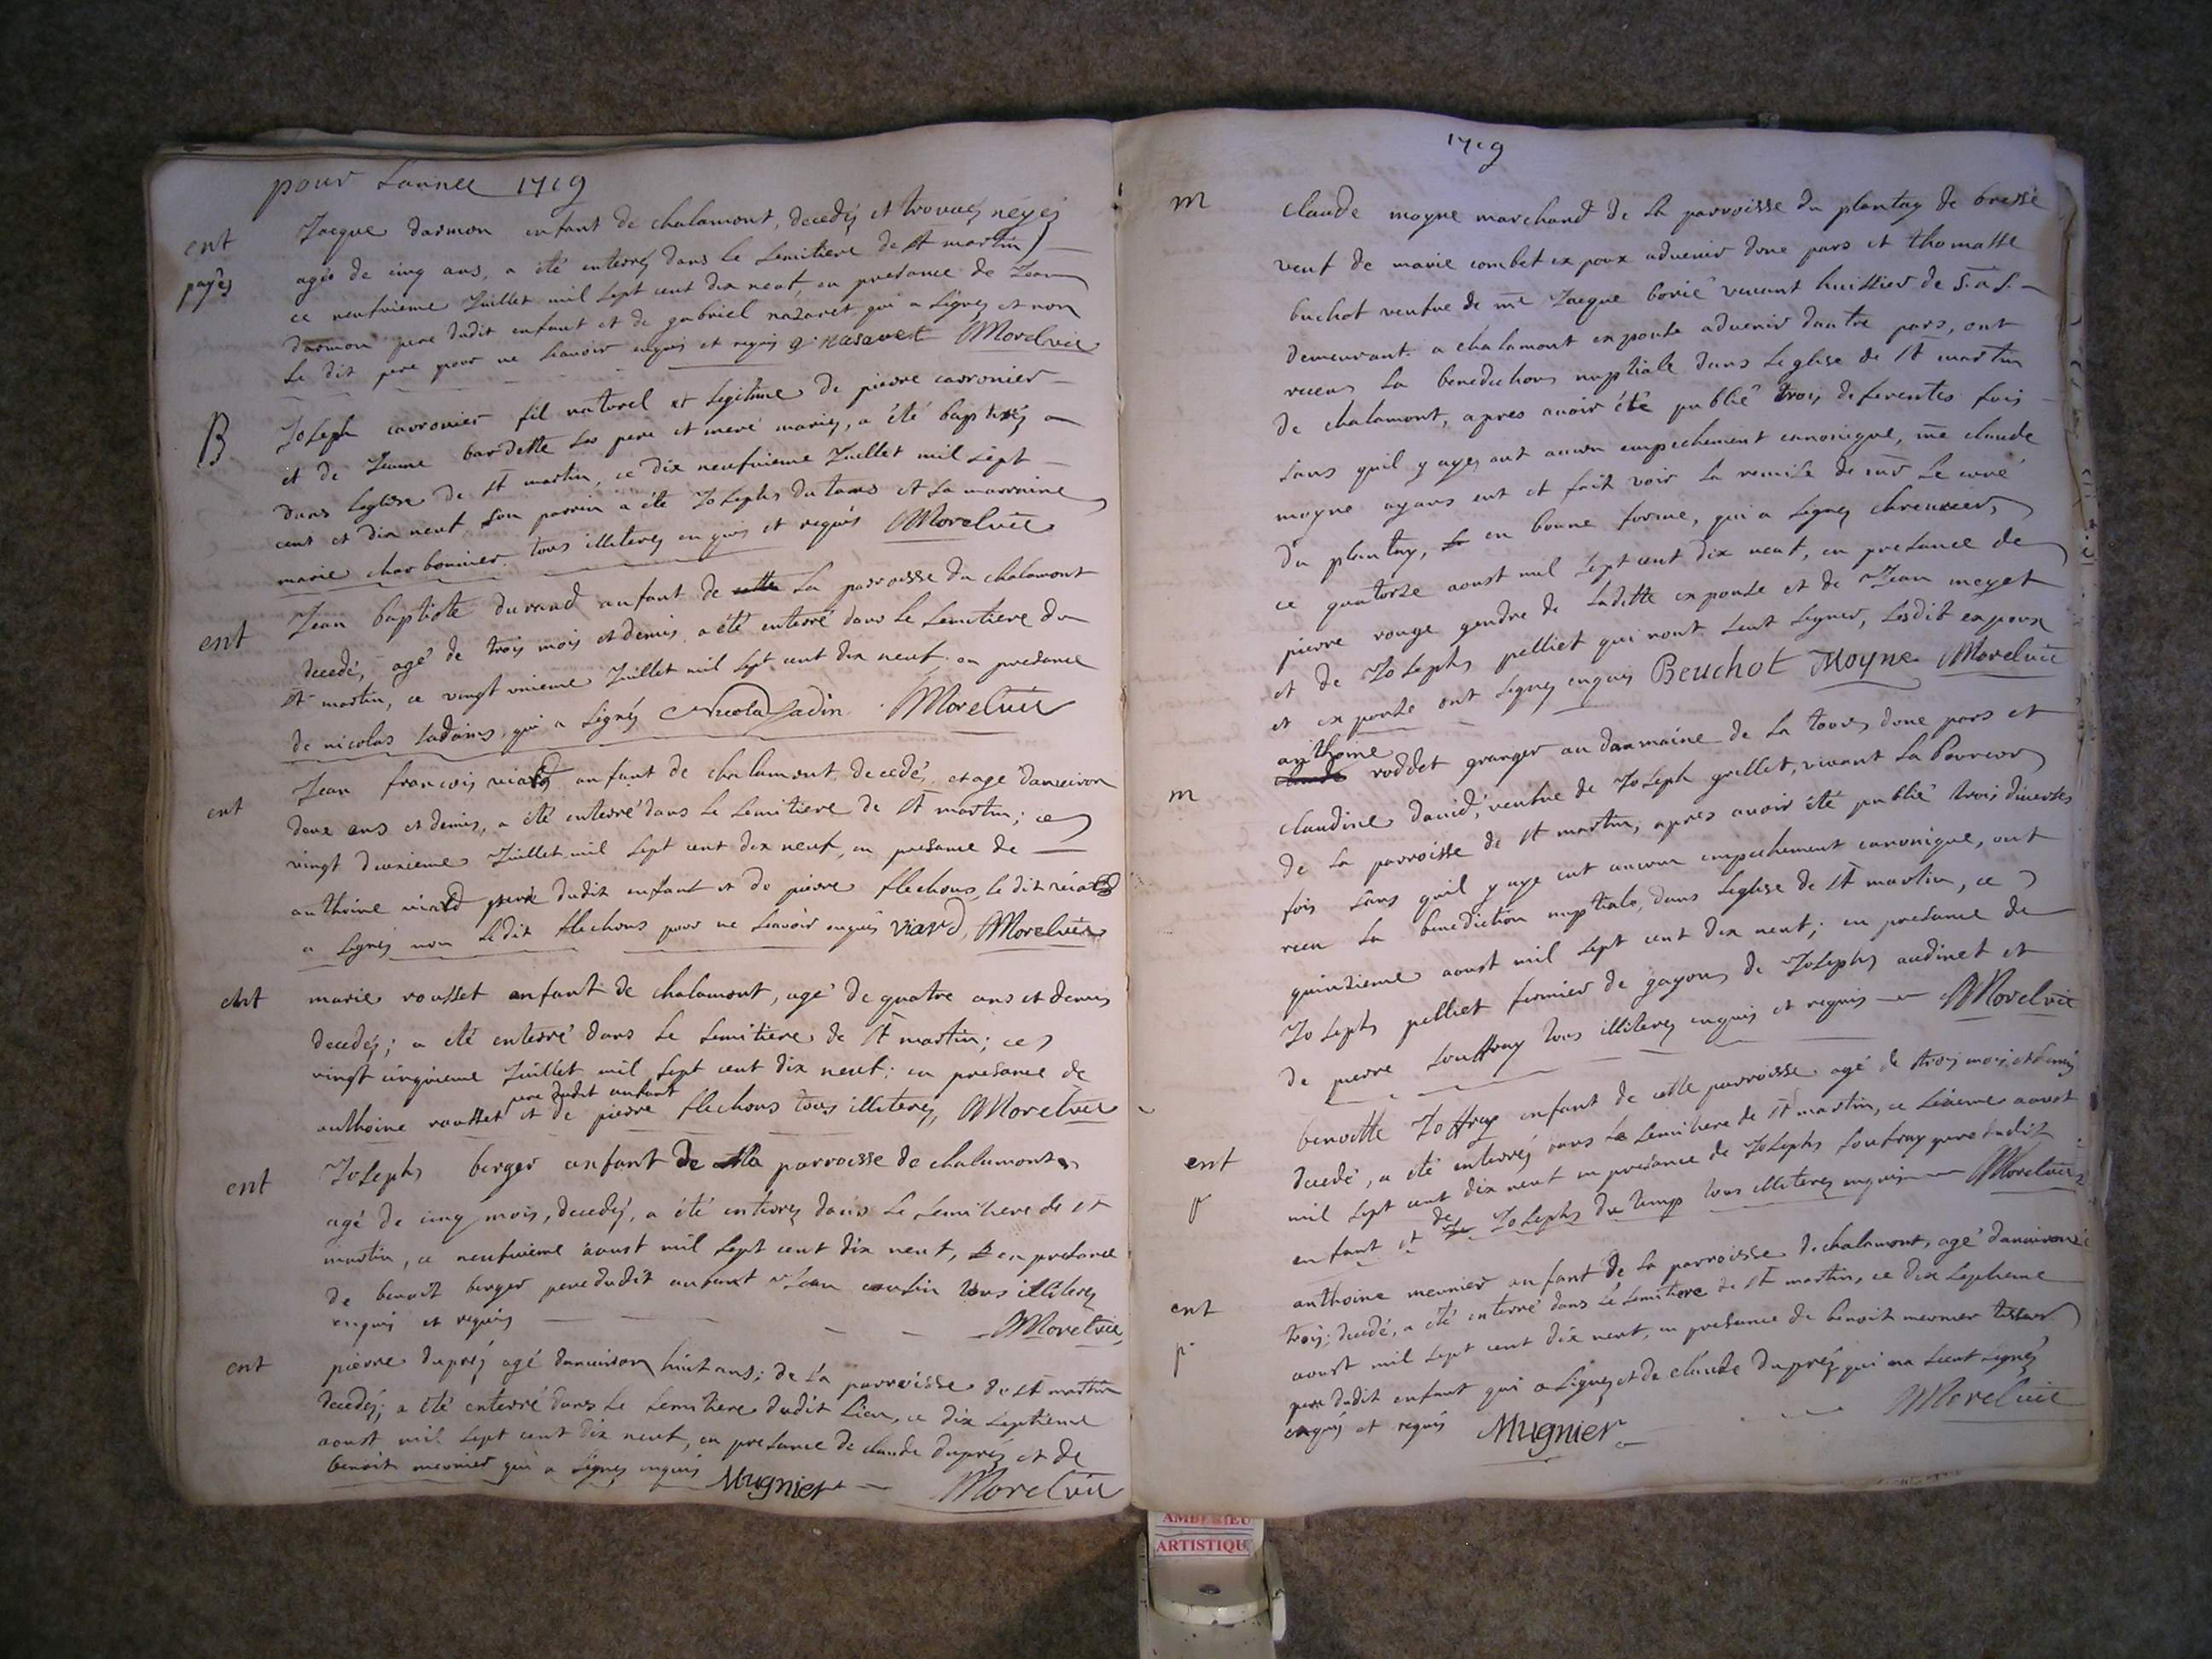 pour Lannee 1719
ent
payés
Jacque darmon enfant de chalamont, decedéz et trouuez neyez
agés de cinq ans, a été enterréz dans Le Semitiere de St martin
ce neufvieme Juillet mil Sept cent dix neuf, en presance de Jean
darmon pere dudit enfant et de gabriel nazaret qui a Signez et non
Le dit pere pour ne Scauoir enquis et requis g. nasaret Morel vic
B
Joseph carronier fil naturel et Legitime de pierre carronier
et de Jeanne bardette Ses pere et mere mariez, a été baptiséz
dans Leglise de St martin, ce dix neufvieme Juillet mil Sept
cent et dix neuf, Son parrin a été Josephs du tans et Sa marraine
marie charbonnier tous illiterez enquis et requis Morel vic
ent
Jean baptiste durand anfant de cette La parroisse du chalamont
decedé, agé de trois mois et demis a été enterré dans Le Semitiere du
St martin, ce vingt unieme Juillet mil Sept cent dix neuf en presance
de nicolas qui a Signéz Nicola Jadin Morel vic
ent
Jean francois viard anfant de chalamont, decedé, et agé danuiron
deux ans et demis, a été enterré dans Le Semitiere de St martin; ce
vingt deuxieme Juillet mil Sept cent dix neuf, en presance de
anthoine viard pere dudit enfant et de pierre flechons, le dit viard
a Signéz non Le dit flechons pour ne Scauoir enquis viard Morel vic
ent
marie rousset anfant de chalamont, agé de quatre ans et demis
decedéz; a été enterré dans Le Semitiere de St martin; ce
vingt cinquieme Juillet mil Sept cent dix neuf; en presance de
pere dudit anfant
anthoine rousset et de pierre flechons tous illiterez, Morel vic
ent
Josephs berger anfant de la parroisse de chalamont
agé de cinq mois, decedéz, a été enterrez dans Le Semitiere de St
martin, ce neufuieme aoust mil Sept cent dix neuf, en presance
de benoit berger pere dudit anfant Jean cousin tous illiterez
enquis et requis Morel vic
ent
pierre dupréz agé danuiron huit ans; de La parroisse de St martin
decedéz; a été enterré dans Le Semitiere dudit Lieu, ce dix Septieme
aoust mil Sept cent dix neuf, en presance de claude dupréz et de
benoit meunier qui a Signez enquis Mugnier Morel vic
1719
m
claude moyne marchand de La parroisse du plantay de bresse
veuf de marie combet expoux aduenir dune pars et thomasse
buchot veufue de me Jacque borié viuant huissier de S. a S.
demeurant a chalamont expouse aduenir dautre pars, ont
receus La benediction nuptiale dans Leglise de St martin
de chalamont, apres auoir été publié trois deferentes fois
Sans quil y ayes eut aucun empechement canonique, me claude
moyne ayans eut et fait voir La remise de mr Le curé
du plantay, en bonne forme, qui a Signez
ce quatorse aoust mil Sept cent dix neuf, en presance de
pierre rouge gendre de Laditte expouse et de Jean meyet
et de Josephs pelliet qui nont Seut Signer, Lesdit expoux
et expouse ont Signez enquis Beuchot Moyne Morel vic
m
anthoine
claude roddet granger au daumaine de La tour, dune pars et
claudine dauid, veufue de Joseph grillet, viuant La
de La parroisse de St martin, apres auoir été publié trois diuerses
fois Sans quil y aye eut aucun empechement canonique, ont
receu La benediction nuptiale, dans Leglise de St martin, ce
quinzieme aoust mil Sept cent dix neuf; en presance de
Josephs pelliet fermier de gayons de Josephs audinet et
de pierre Souffray tous illiterez enquis et requis Morel vic
ent
p
benoitte Joffray enfant de cette parroisse agé de trois mois et demis
decedé, a été enterréz dans Le Semitiere de St martin, ce aoust
mil Sept cent dix neuf en presance de Josephs Soufray pere dudit
enfant et de Josephs du temps tous illiterez enquis Morel vic
ent
p
anthoine meunier anfant de La parroisse de chalamont, agé danuiron
trois; decedé, a été enterré dans Le Semitiere de St martin, ce dix Septieme
aoust mil Sept cent dix neuf, en presance de benoit meunier
pere dudit enfant qui a Signez et de claude dupréz qui na Sceut Signéz
enquis et requis Mugnier Morel vic
AMBERIEU
ARTISTIQU